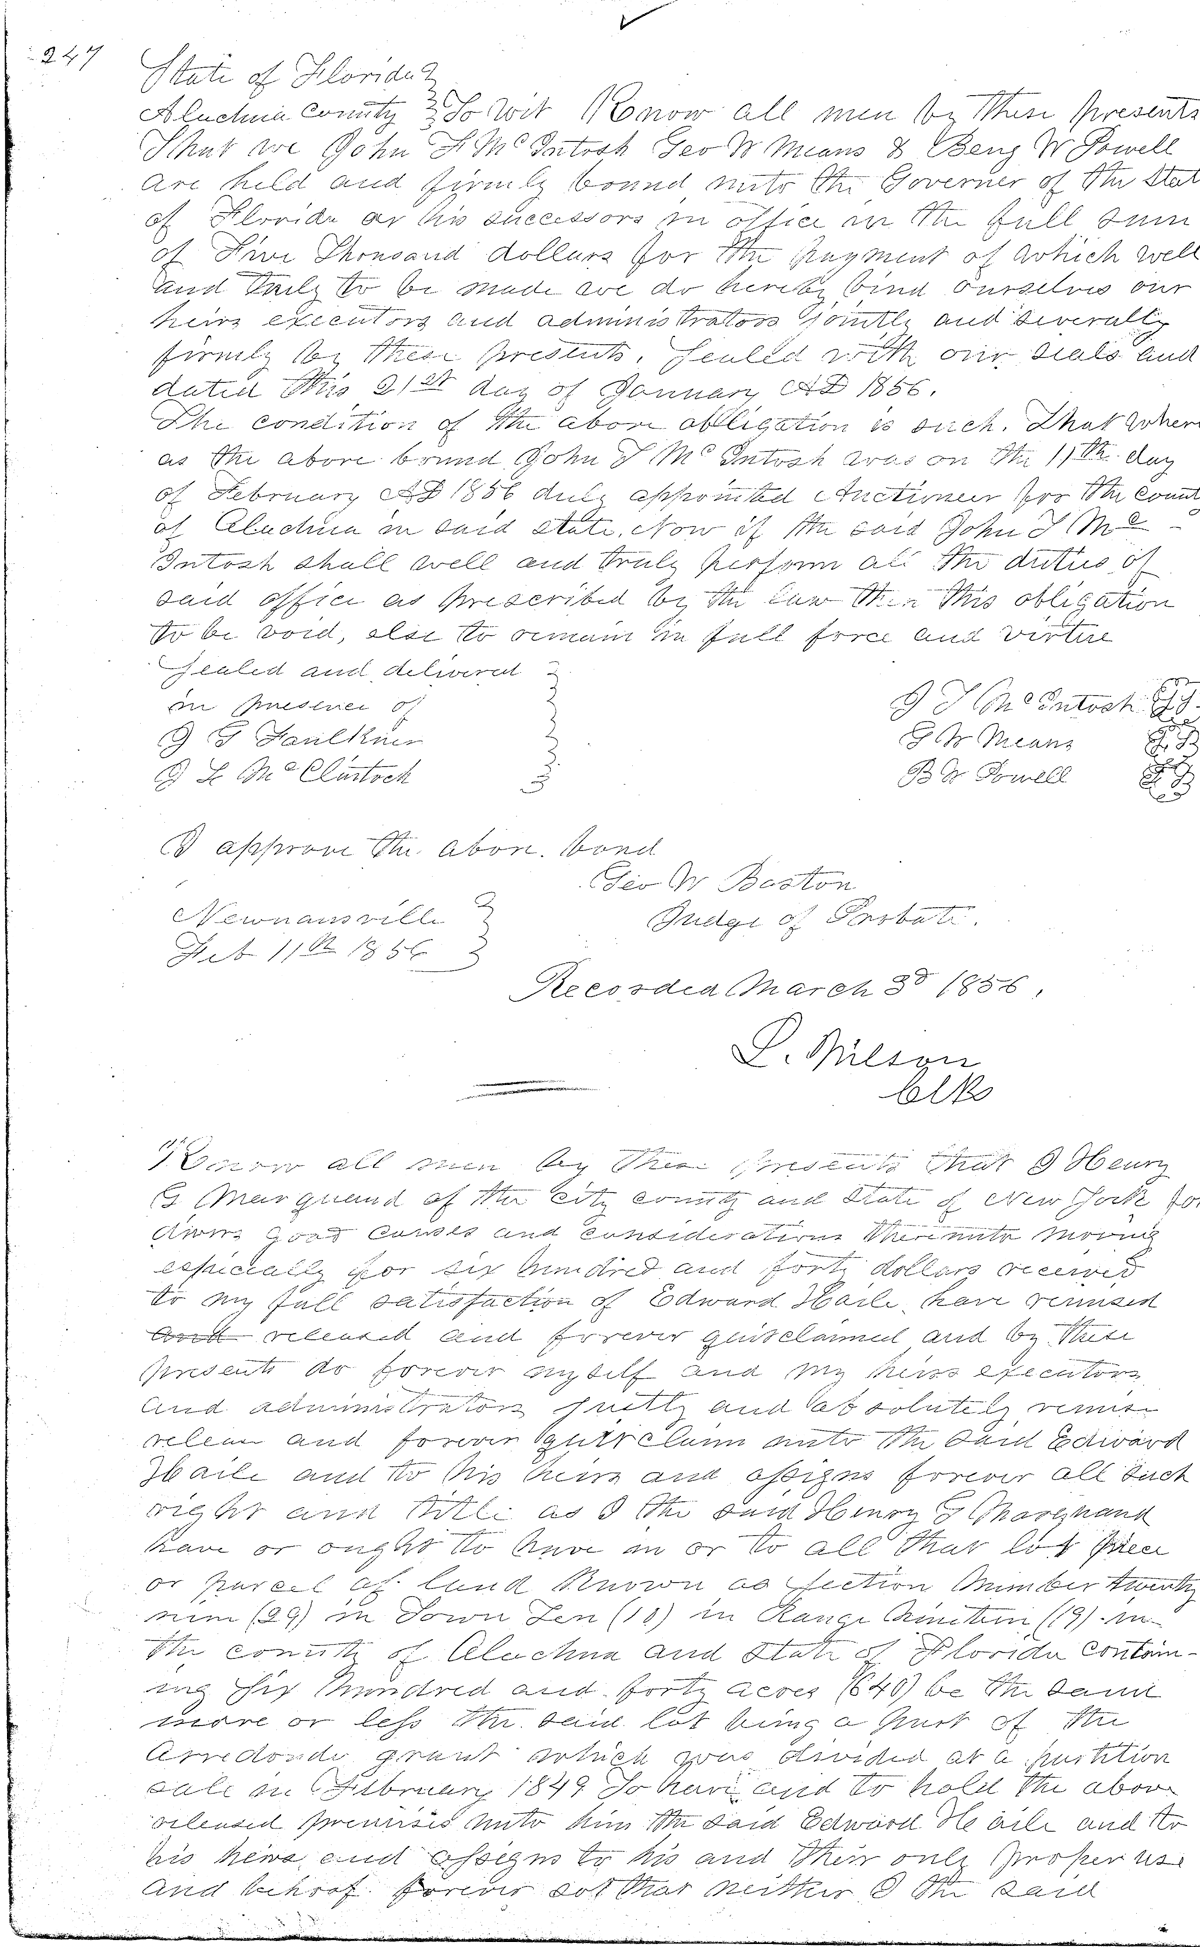 247
State of Florida
Alachua County } To Wit Know all men by these presents
That we John F McIntosh Geo W Means & Benj W Powell
are held and firmly bound unto the Governer of the Stat
of Florida or his successors in office in the full sum
of Five Thousand dollars for the payment of which well
and truly to be made we do hereby bind ourselves our
heirs executors and administrators jointly and severally
firmly by these presents. Sealed with our seals and
dated this 21st day of January AD 1856.
The condition of the above obligation is such. That wher
as the above bound John T McIntosh was on the 11th day
of February AD 1856 duly appointed Auctioneer for the count
of Alachua in said state. Now if the said John T Mc
Intosh shall well and truly perform all the duties of
said office as prescribed by the law then this obligation
to be void, else to remain in full force and virtue
Sealed and delivered
in presence of
J T McIntosh
J G Faulkner
G W Means
J L McClintock
B W Powell
I approve the above bond
Geo W Baston
Newnansville
Judge of Probate.
Feb 11th 1856
Recorded March 3d 1856.
L. Wilson
Clk
Know all men by these presents that I Henry
G Marquand of the city county and State of New York for
divers good causes and considerations thereunto moving
especially for six hundred and forty dollars received
to my full satisfaction of Edward Haile, have remised
and released and forever quitclaimed and by these
presents do forever myself and my heirs executors
and administrators justly and absolutely remise
release and forever quitclaim unto the said Edward
Haile and to his heirs and assigns forever all such
right and title as I the said Henry G Marquand
have or ought to have in or to all that lot piece
or parcel of land Known as Section Number twenty
nine (29) in Town Ten (10) in Range Nineteen (19) in
the county of Alachua and State of Florida contain-
ing Six hundred and forty acres (640) be the same
more or less the said lot being a part of the
Arredondo grant which was divided at a partition
sale in February 1849 To have and to hold the above
released premises unto him the said Edward Haile and to
his heirs and assigns to his and their only proper use
and behoof forever sot that neither I the said